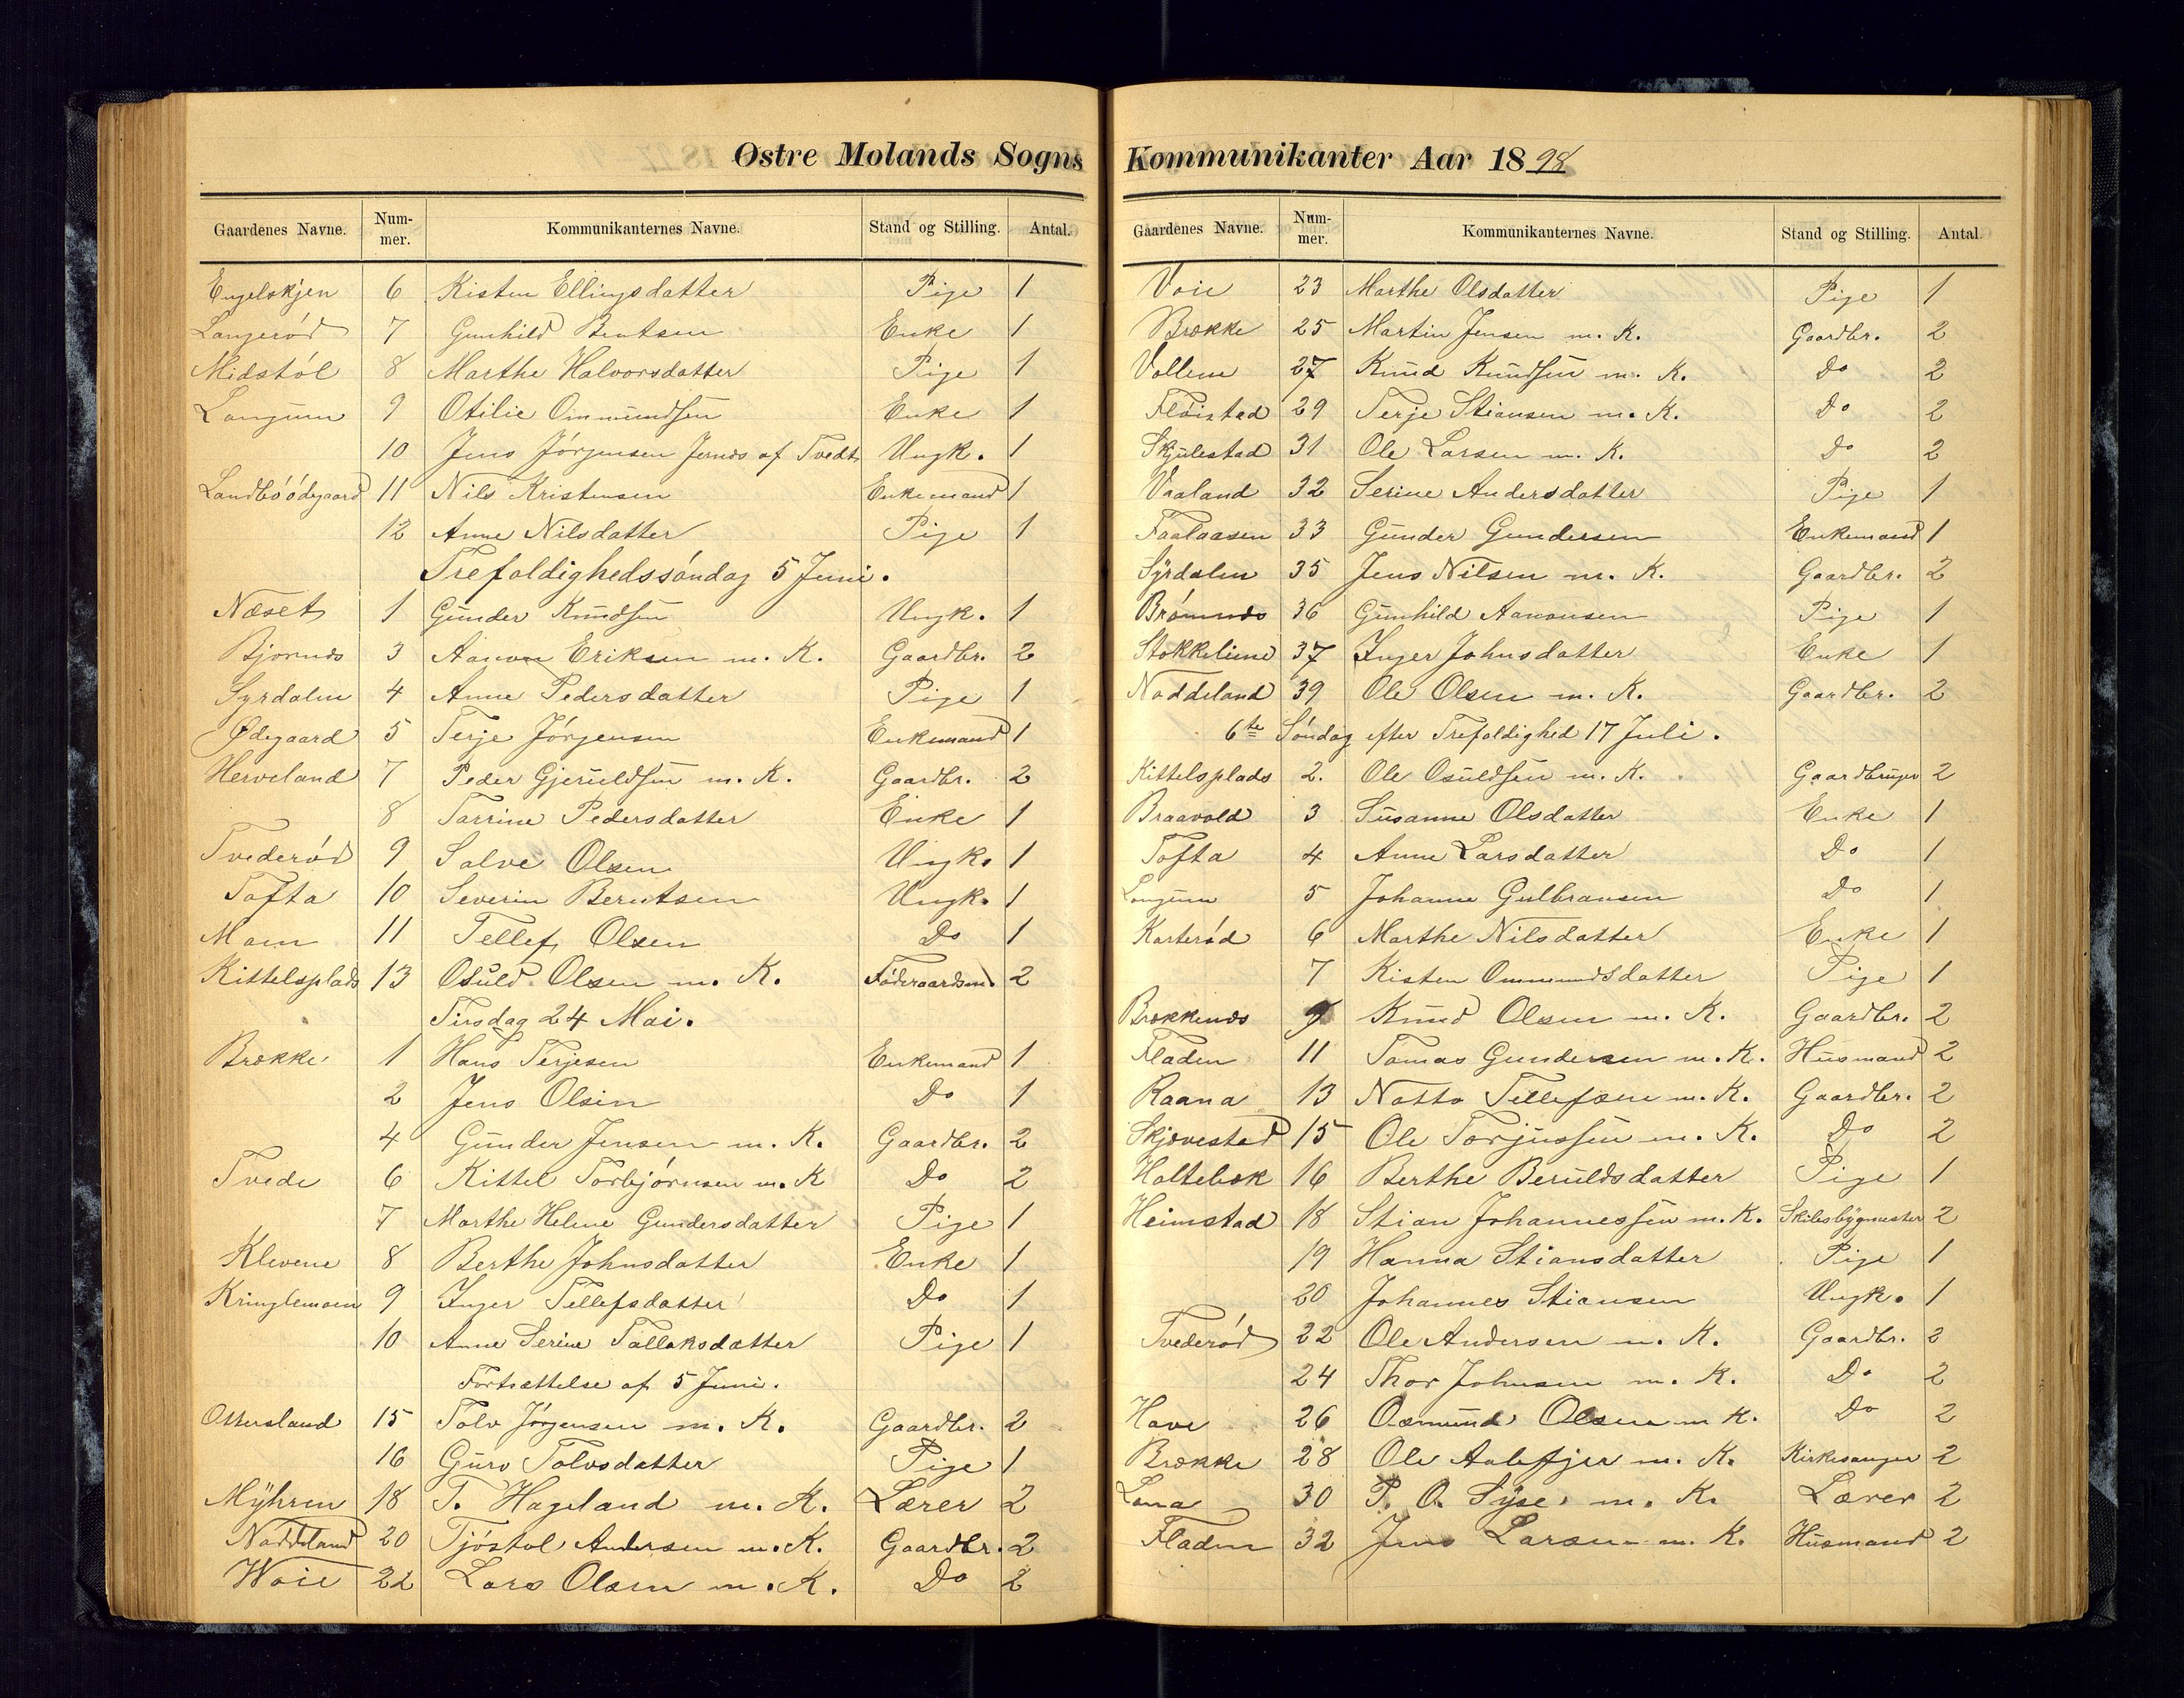 Østre Molands Sogns
Gaardenes Navne. Num-mer. Kommunikanternes Navne. Stand og Stilling. Antal.
Engelskjen 6 Kisten Ellingsdatter Pige 1
Langerød 7 Gunhild Bentsen Enke 1
Midstøl 8 Marthe Halvorsdatter Pige 1
Langum 9 Otilie Ommundsen Enke 1
10 Jens Jørgensen Jernæs af Tvedt Ungk. 1
Landbøødegaard 11 Nils Kristensen Enkemand 1
12 Anne Nilsdatter Pige 1
Trefoldighedssøndag 5 Juni.
Næset 1 Gunder Knudsen Ungk. 1
Bjornæs 3 Aanon Eriksen m. K. Gaardbr. 2
Syrdalen 4 Anne Pedersdatter Pige 1
Ødegaard 5 Terje Jørgensen Enkemand 1
Herveland 7 Peder Gjeruldsen m. K. Gaardbr. 2
8 Tarrine Pedersdatter Enke 1
Tvederød 9 Salve Olsen Ungk. 1
Tofta 10 Severin Berntsen Ungk. 1
Moen 11 Tellef Olsen Do 1
Kittelsplads 13 Osuld Olsen m. K. Føderaadsmd. 2
Tirsdag 24 Mai.
Brække 1 Hans Terjesen Enkemand 1
2 Jens Olsen Do 1
4 Gunder Jensen m. K. Gaardbr. 2
Tvede 6 Kittel Torbjørnsen m. K Do 2
7 Marthe Helene Gundersdatter Pige 1
Klevene 8 Berthe Johnsdatter Enke 1
Kringlemoen 9 Inger Tellefsdatter Do 1
10 Anne Serine Tallaksdatter Pige 1
Fortsættelse af 5 Juni.
Ottersland 15 Tolv Jørgensen m. K. Gaardbr. 2
16 Guro Tolvsdatter Pige 1
Myhren 18 T. Hageland m. K. Lærer 2
Noddeland 20 Tjøstol Andersen m. K. Gaardbr. 2
Woie 22 Lars Olsen m. K. Do 2
Kommunikanter Aar 1898
Gaardenes Navne. Num-mer. Kommunikanternes Navne. Stand og Stilling. Antal
Voie 23 Marthe Olsdatter Pige 1
Brække 25 Martin Jensen m. K. Gaardbr. 2
Vollene 27 Knud Knudsen m. K. Do 2
Fløistad 29 Terje Stiansen m. K. Do 2
Skjulestad 31 Ole Larsen m. K. Do 2
Vaaland 32 Serine Andersdatter Pige 1
Faalaasen 33 Gunder Gundersen Enkemand 1
Syrdalen 35 Jens Nilsen m. K. Gaardbr. 2
Brømnæs 36 Gunhild Aanonsen Pige 1
Stokkeliene 37 Inger Johnsdatter Enke 1
Noddeland 39 Ole Olsen m. K. Gaardbr. 2
6te Søndag efter Trefoldighed 17 Juli.
Kittelsplads 2. Ole Osuldsen m. K. Gaardbruger 2
Braavold 3 Susanne Olsdatter Enke 1
Tofta 4 Anne Larsdatter Do 1
Longum 5 Johanne Gulbransen Do 1
Karterød 6 Marthe Nilsdatter Enke 1
7 Kisten Ommundsdatter Pige 1
Brekkenæs 9 Knud Olsen m. K. Gaardbr. 2
Fladen 11 Tomas Gundersen m. K. Husmand 2
Raana 13 Notto Tellefsen m. K. Gaardbr. 2
Skjævestad 15 Ole Torjussen m. K. Do 2
Holtebæk 16 Berthe Beruldsdatter Pige 1
Heimstad 18 Stian Johannessen m. K. Skibsbygmester 2
19 Hanna Stiansdatter Pige 1
20 Johannes Stiansen Ungk. 1
Tvederød 22 Ole Andersen m. K. Gaardbr. 2
24 Thor Johnsen m. K. Do 2
Have 26 Osmund Olsen m K. Do 2
Brække 28 Ole Aalefjær m. K. Kirkesanger 2
Lona 30 P. O. Syse m. K. Lærer 2
Fladen 32 Jens Larsen m. K. Husmand 2